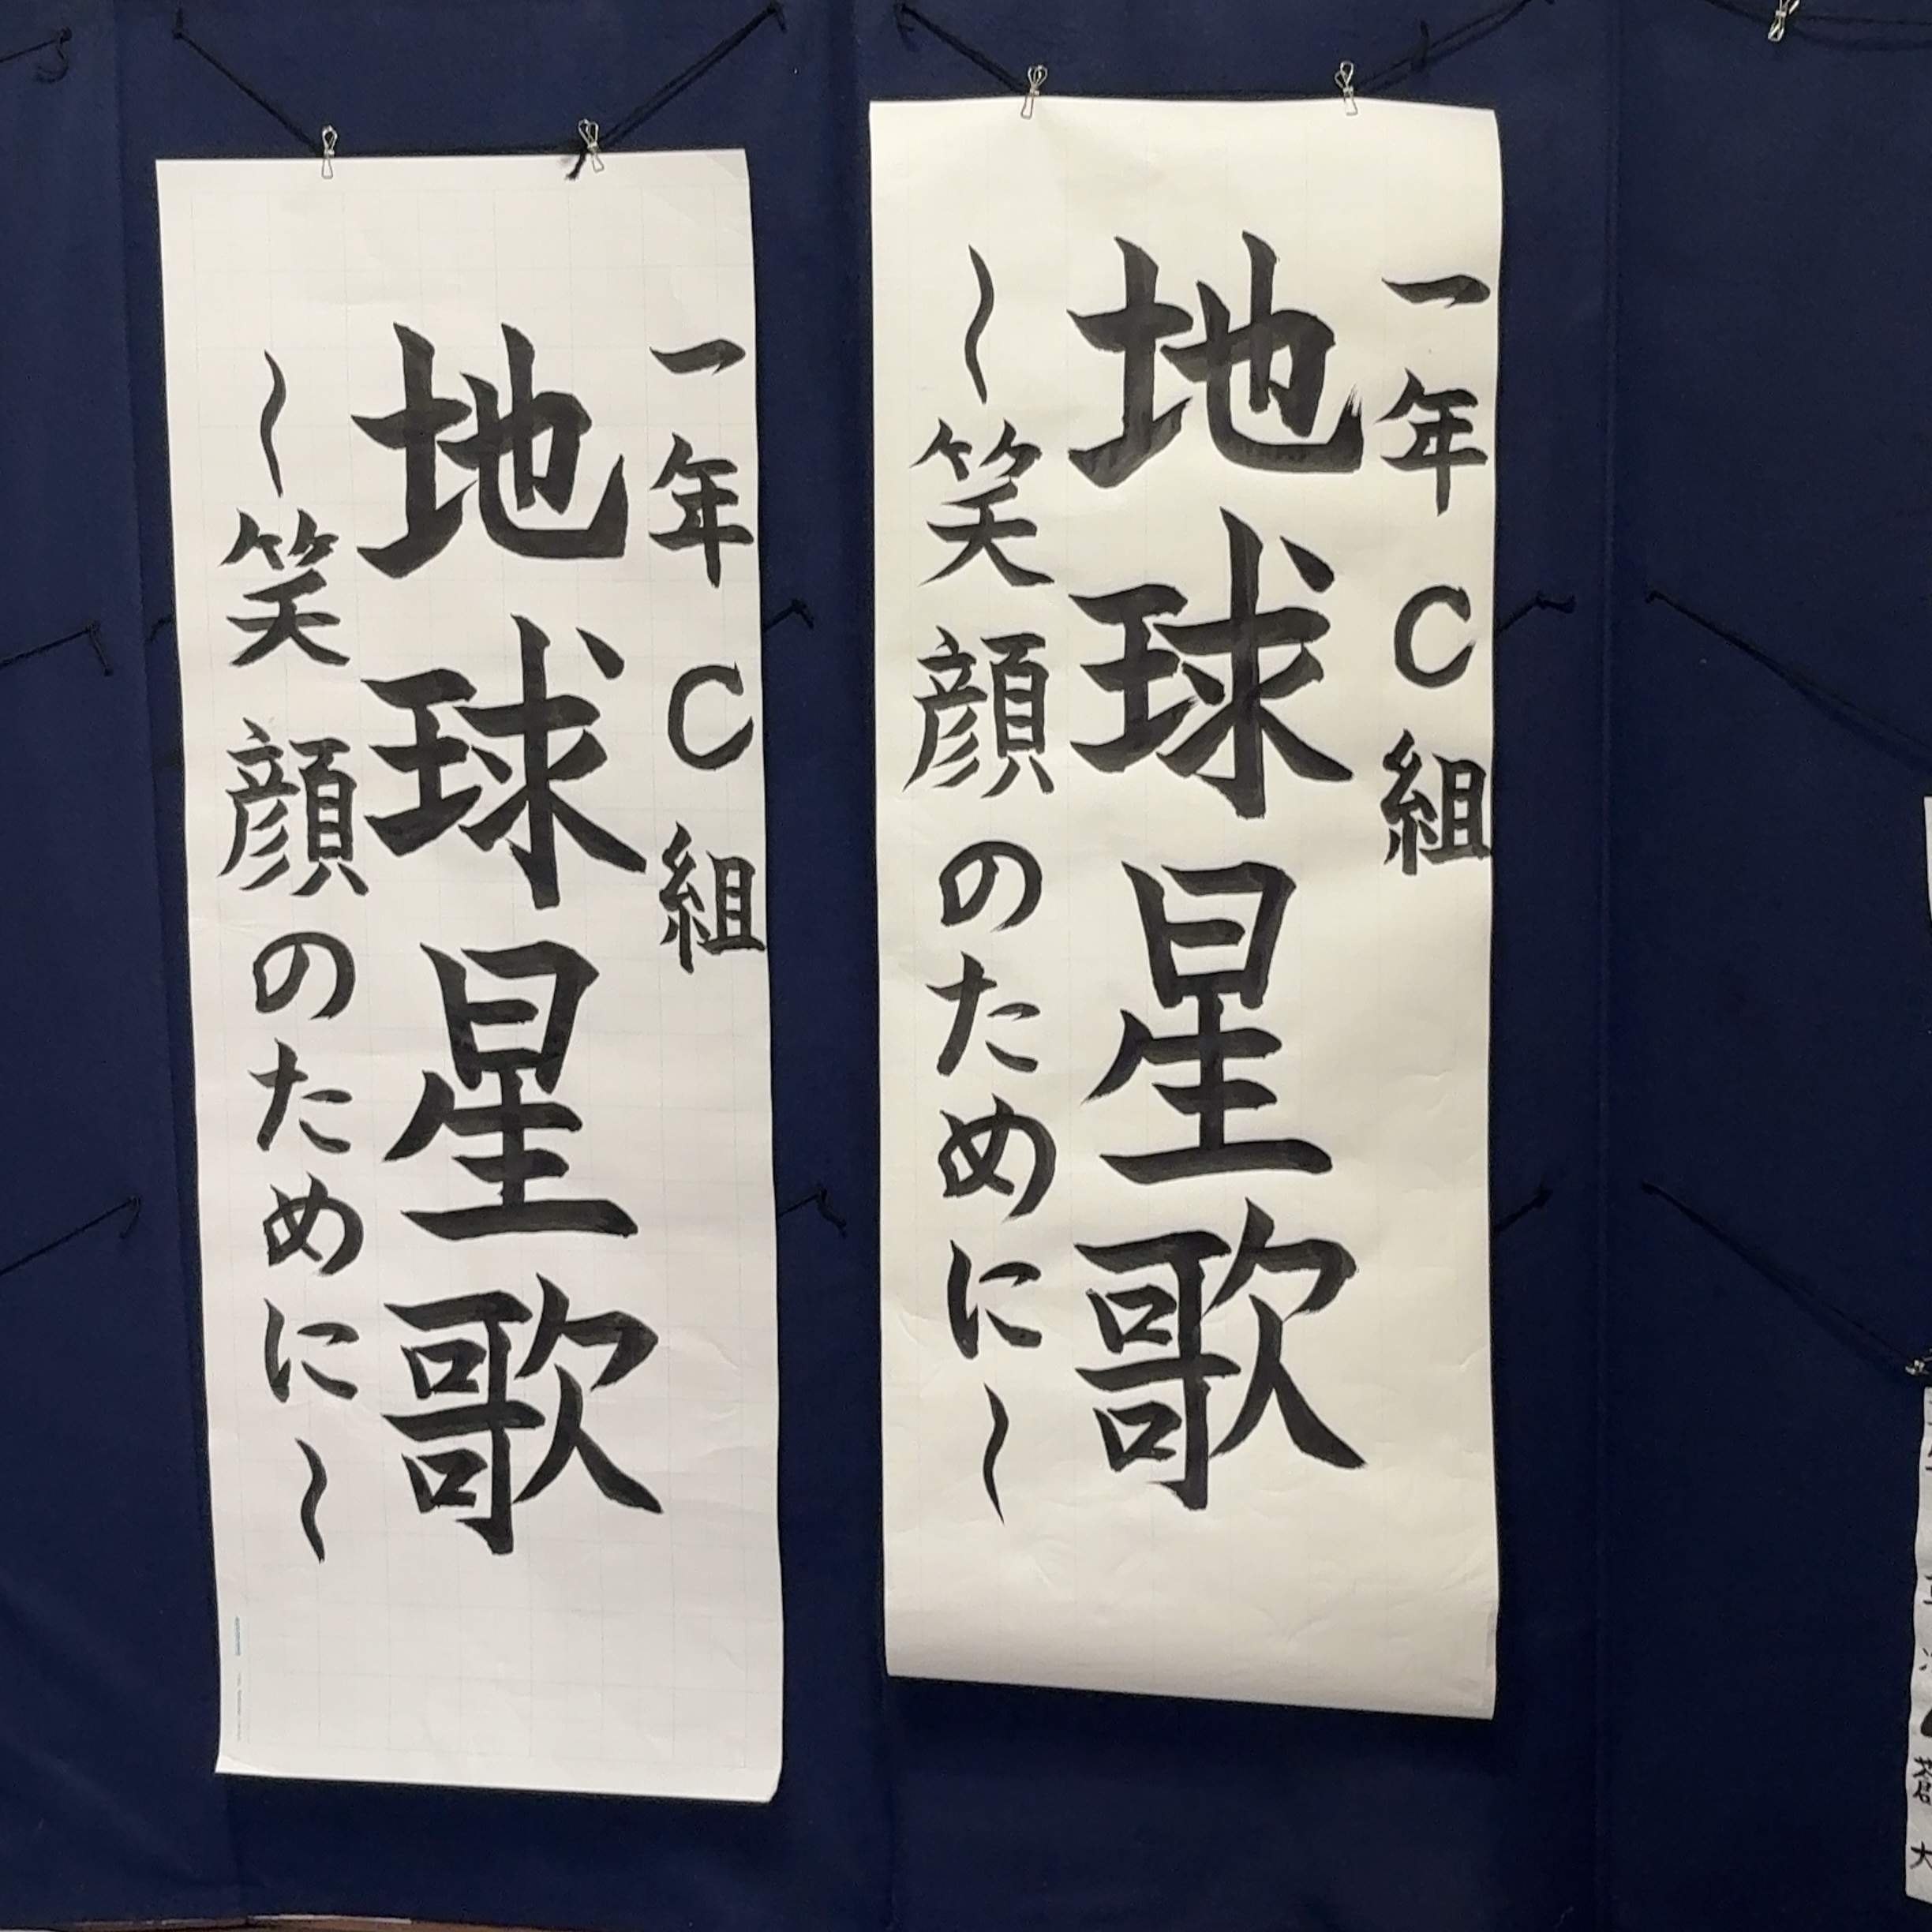 一年C組
地球星歌
〜笑顔のために〜
一年C組
地球星歌
〜笑顔のために〜